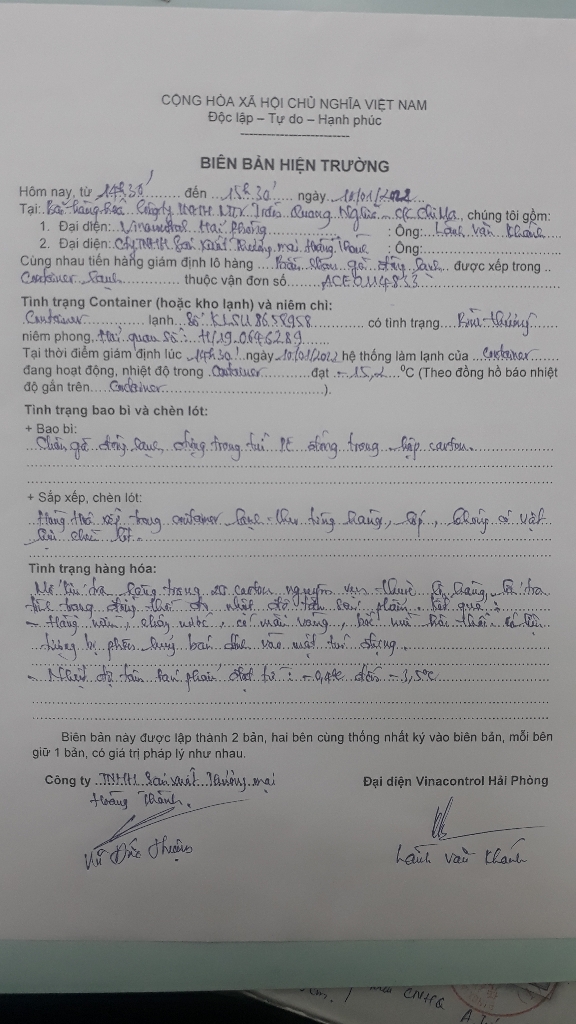 CỘNG HÒA XÃ HỘI CHỦ NGHĨA VIỆT NAM
Độc lập – Tự do – Hạnh phúc
BIÊN BẢN HIỆN TRƯỜNG
Hôm nay, từ 14h30' đến 15h30' ngày 10/01/2022
Tại: Công ty TNHH MTV Quang Nghĩa – CK Chi Ma, chúng tôi gồm:
1. Đại diện: Vinacontrol Hải Phòng : Ông: Lành Văn Khánh
2. Đại diện: Cty TNHH Sản xuất Thương mại Hoàng Thành : Ông:
Cùng nhau tiến hàng giám định lô hàng Chân gà đông lạnh được xếp trong
Container lạnh thuộc vận đơn số
Tình trạng Container (hoặc kho lạnh) và niêm chì:
Container lạnh Số có tình trạng Bình thường
niêm phong Hải quan số: H/19.0646289
Tại thời điểm giám định lúc 14h30' ngày 10/01/2022 hệ thống làm lạnh của Container
đang hoạt động, nhiệt độ trong Container đạt -15,2 ⁰C (Theo đồng hồ báo nhiệt
độ gắn trên Container ).
Tình trạng bao bì và chèn lót:
+ Bao bì:
Chân gà đông lạnh đựng trong túi PE đóng trong hộp carton.
+ Sắp xếp, chèn lót:
Hàng hóa xếp trong container lạnh theo từng hàng, lớp, không có vật
liệu chèn lót.
Tình trạng hàng hóa:
Mở kiểm tra hàng trong 20 carton nguyên vẹn thuộc lô hàng,
đồng thời đo nhiệt độ tâm sản phẩm. Kết quả:
- Hàng mềm, chảy nước, có màu vàng, bốc mùi hôi thối
- Nhiệt độ tâm sản phẩm đạt từ: -0,4⁰C đến -3,5⁰C
Biên bản này được lập thành 2 bản, hai bên cùng thống nhất ký vào biên bản, mỗi bên
giữ 1 bản, có giá trị pháp lý như nhau.
Công ty TNHH Sản xuất Thương mại
Hoàng Thành.
Đại diện Vinacontrol Hải Phòng
Vũ Đức Thuận
Lành Văn Khánh